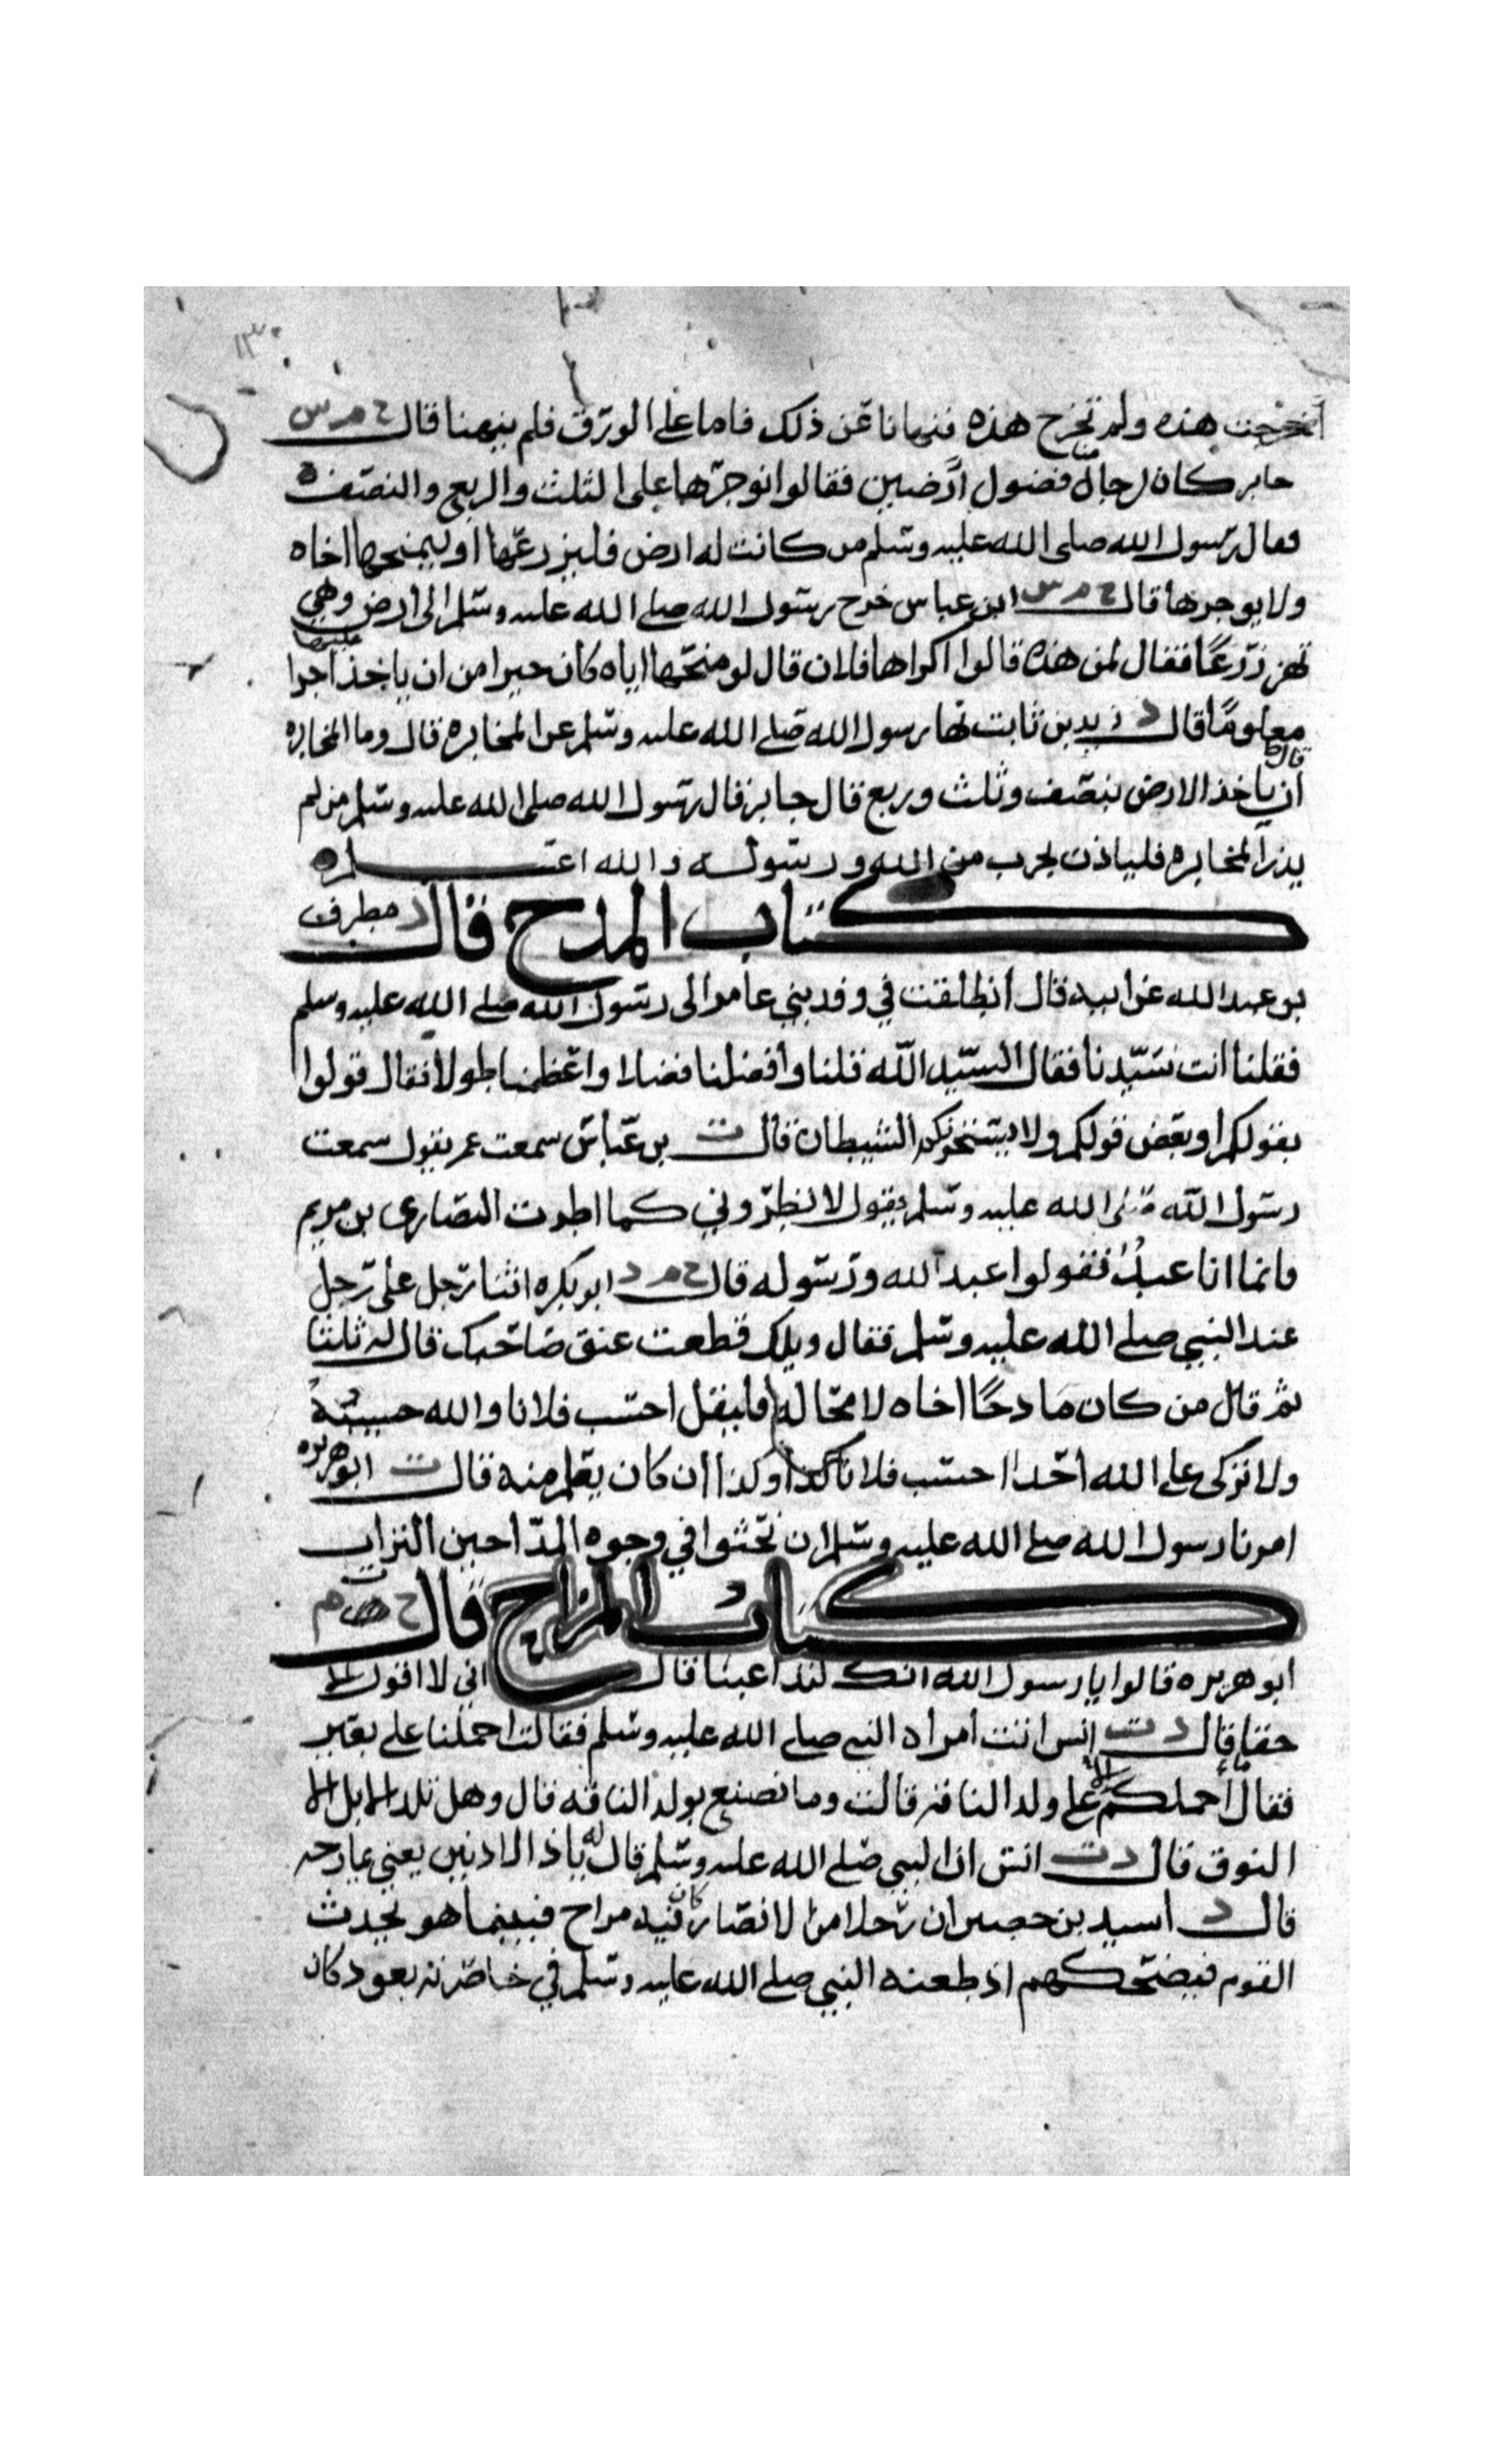 ١٣٠
اخرجت هذه ولم تخرج هذه فنهانا عن ذلك فاما على الورق فلم ينهنا قال خ م س
جابر كان لرجال منا فضول ارضين فقالوا نوجرها على الثلث والربع والنصف
فقال رسول الله صلى الله عليه وسلم من كانت له ارض فليزرعها او ليمنحها اخاه
ولا يوجرها قال خ م س ابن عباس خرج رسول الله صلى الله عليه وسلم الى ارض وهي
تهز زرعا فقال لمن هذه قالوا اكراها فلان قال لو منحها اياه كان خيرا من ان ياخذ عليها اجرا
معلوما قال د زيد بن ثابت نها رسول الله صلى الله عليه وسلم عن المخابره قال وما المخابره
قال ان ياخذ الارض بنصف وثلث وربع قال جابر قال رسول الله صلى الله عليه وسلم من لم
يذر المخابره فلياذن بحرب من الله ورسوله والله اعلم
كتاب المدح قال د مطرف
بن عبد الله عن ابيه قال انطلقت في وفد بني عامر الى رسول الله صلى الله عليه وسلم
فقلنا انت سيدنا فقال السيد الله قلنا وافضلنا فضلا واعظمنا طولا فقال قولوا
بقولكم او بعض قولكم ولا يستخونكم الشيطان قال ت بن عباس سمعت عمر يقول سمعت
رسول الله صلى الله عليه وسلم يقول لا تطروني كما اطرت النصارى بن مريم
فانما انا عبد فقولوا عبد الله ورسوله قال خ م د ابو بكره اثنا رجل على رجل
عند النبي صلى الله عليه وسلم فقال ويلك قطعت عنق صاحبك قال له ثلثا
ثم قال من كان مادحا اخاه لا محاله فليقل احسب فلانا والله حسيبه
ولا نزكي على الله احدا احسب فلانا كذا وكذا ان كان يعلم منه قال ت ابو هريره
امرنا رسول الله صلى الله عليه وسلم ان نحثوا في وجوه المداحين التراب
كتاب المزاح قال
ابو هريره قالوا يا رسول الله انك لتداعبنا قال اني لا اقول الا
حقا قال د ت انس اتت امراه النبي صلى الله عليه وسلم فقالت احملنا على بعير
فقال ما احملكم الا على ولد الناقه قالت وما نصنع بولد الناقه قال وهل تلد الابل الا
النوق قال د ت انس ان النبي صلى الله عليه وسلم قال له يا ذا الاذنين يعني يمازحه
قال د اسيد بن حصير ان رجلا من الانصار كان فيه مزاح فبينما هو يحدث
القوم فيضحكهم اذ طعنه النبي صلى الله عليه وسلم في خاصرته بعود كان